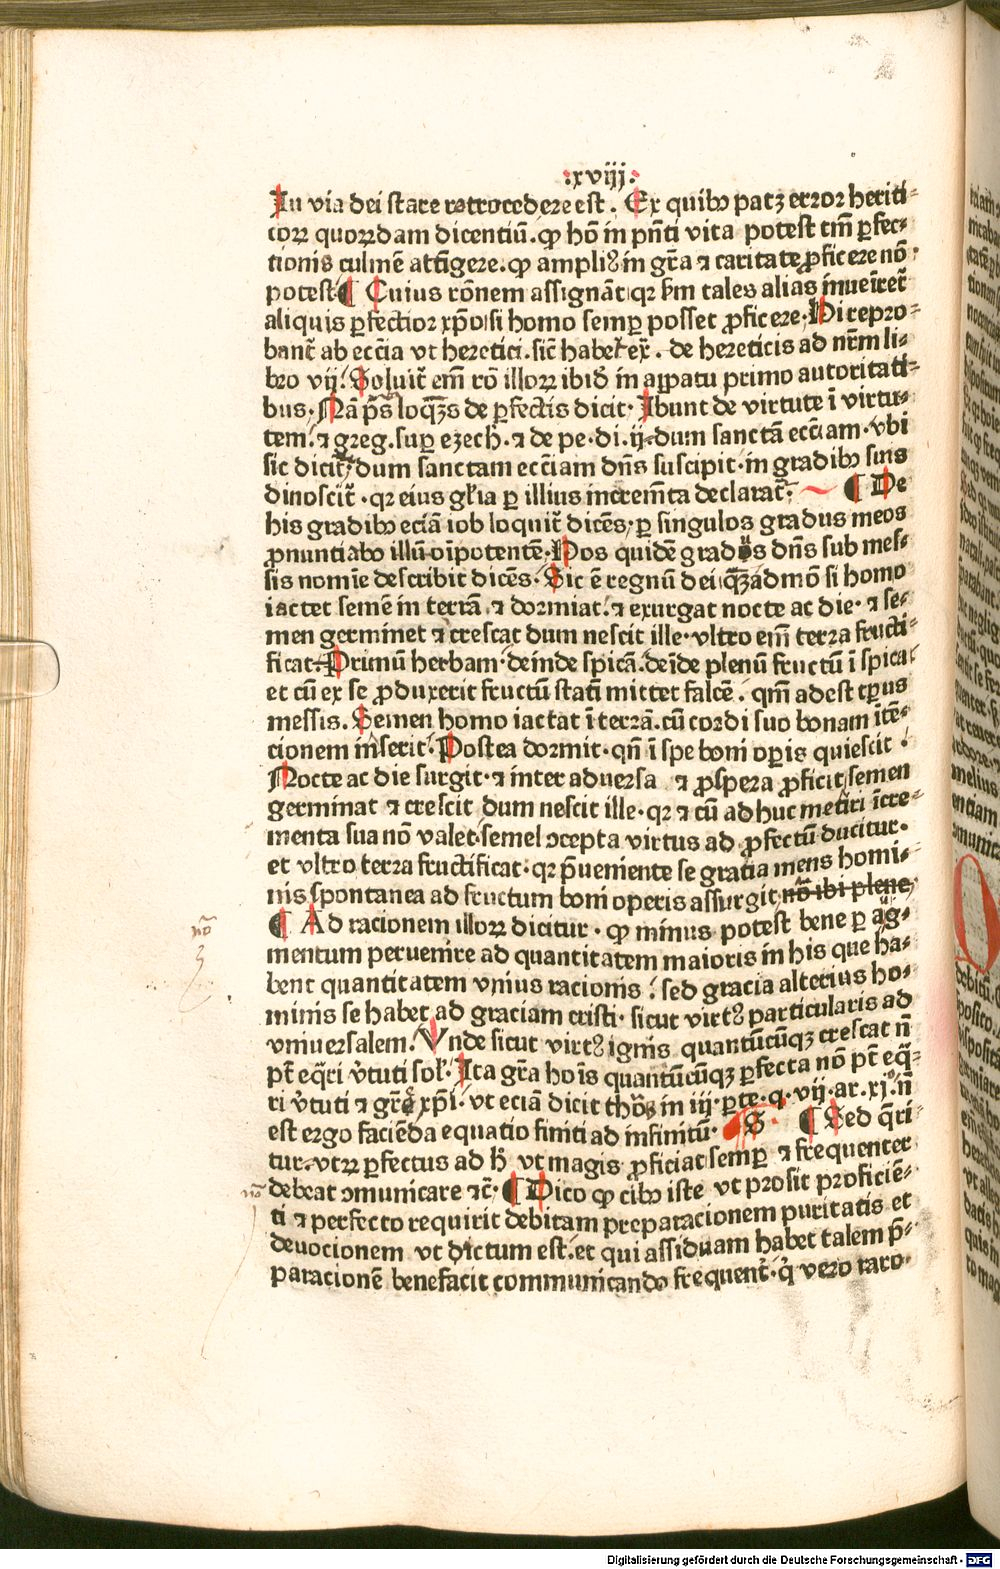 :xviij:
In via dei stare retrocedere est . Ex quibꝫ patꝫ error heriti⸗
coꝝ quoꝝdam dicentiū . ꝙ hō in pn̄ti vita potest tm̄ ꝑfec⸗
tionis culmē attīgere . ꝙ amplius in gr̄a ⁊ caritate ꝓficere nō
potest ¶ Cuius rōnem assignāt qꝛ ẜm tales alias inueīret
aliquis ꝑfectior xp̄o si homo semꝑ posset ꝓficere , Hi repro⸗
banť ab ecc̄ia vt heretici . sic̄ habeť ex̄ . de hereticis ad nr̄m li⸗
bro vij . Soluiť em̄ rō illoꝝ ibid̄ in appatu primo autoritati⸗
bus . Nā ps̄ loq̄ꝫs de ꝑfectis dicit . Ibunt de virtute ī virtu⸗
tem . ⁊ greg . suꝑ ezech̄ . ⁊ de pe . di . ij . dum sanctā ecc̄iam . vbi
sic diciť dum sanctam ecc̄iam dn̄s suscipit . in gradibꝫ suis
dinosciť . qꝛ eius gl̄ia ꝑ illius increm̄ta declarať . ¶ De
his gradibꝫ eciā iob loquiť dicēs , ꝑ singulos gradus meos
ꝓnuntiabo illū oīpotentē . Hos quidē gradus dn̄s sub mes⸗
sis nomīe describit dicēs . Sic ē regnū dei q̄ꝫadmō si homo
iactet semē in terrā ⁊ dormiat . ⁊ exurgat nocte ac die . ⁊ se⸗
men germinet ⁊ crescat dum nescit ille . vltro em̄ terra fructi⸗
ficat . Primū herbam . deinde spicā . deīde plenū fructū ī spica
et cū ex se ꝓduxerit fructū statī mittet falcē . qm̄ adest tp̄us
messis . Semen homo iactat ī terrā . cū cordi suo bonam ītē⸗
cionem inserit . Postea dormit . qn̄ ī spe boni oꝑis quiescit .
Nocte ac die surgit . ⁊ inter aduersa ⁊ ꝓspera ꝓficit semen
germinat ⁊ crescit dum nescit ille . qꝛ ⁊ cū adhuc metiri īcre⸗
menta sua nō valet . semel ɔcepta virtus ad ꝓfectū ducitur .
et vltro terra fructificat . qꝛ p̄ueniente se gratia mens homi⸗
nis spontanea ad fructum boni operis assurgit nō ibi plene ,
¶ Ad racionem illoꝝ dicitur . ꝙ minus potest bene ꝑ aug⸗
mentum peruenire ad quantitatem maioris in his que ha⸗
bent quantitatem vnius racionis . sed gracia alterius ho⸗
minis se habet ad graciam cristi . sicut virtꝰ particularis ad
vniuersalem . Vnde sicut virtꝰ ignis quantūcūqꝫ crescat n̄
pt̄ eq̄ri v̄tuti sol̄ . Ita gr̄a hoīs quantūcūqꝫ ꝑfecta nō pt̄ eq̄⸗
ri v̄tuti ⁊ gr̄e xp̄i . vt eciā dicit thō . in iij . ꝑte . q . vij . ar . xj . n̄
est ergo faciēda equatio finiti ad infinitū . S ¶ Sed q̄ri
tur . vtꝝ ꝑfectus ad h̄ vt magis ꝓficiat semꝑ ⁊ frequenter
debeat ɔmunicare ⁊c̄ . ¶ Dico ꝙ cibꝫ iste vt prosit proficiē⸗
ti ⁊ perfecto requirit debitam preparacionem puritatis et
deuocionem vt dictum est . et qui assiduam habet talem p̄⸗
paracionē benefacit communicando frequenť . q̄ vero raro .
nō
nō
Digitalisierung gefördert durch die Deutsche Forschungsgemeinschaft - DFG